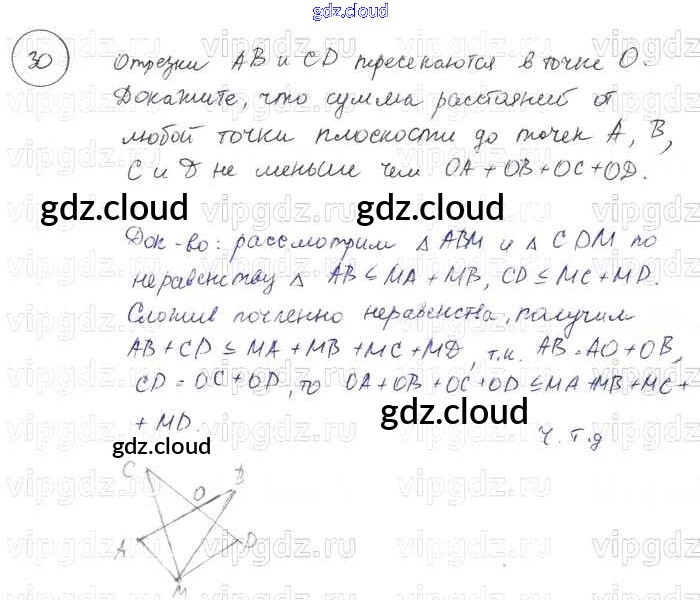 gdz.cloud
30 Отрезки AB и CD пересекаются в точке O.
Докажите, что сумма расстояний от
любой точки плоскости до точек A, B,
C и D не меньше чем OA + OB + OC + OD.
gdz.cloud gdz.cloud
Док-во: рассмотрим △ ABM и △ CDM по
неравенству △ AB ≤ MA + MB, CD ≤ MC + MD.
Сложив почленно неравенства, получим
AB + CD ≤ MA + MB + MC + MD, т.к. AB = AO + OB,
CD = OC + OD, то OA + OB + OC + OD ≤ MA + MB + MC +
+ MD.
gdz.cloud
ч.т.д
gdz.cloud
C
O
B
A
D
M
vipgdz.ru